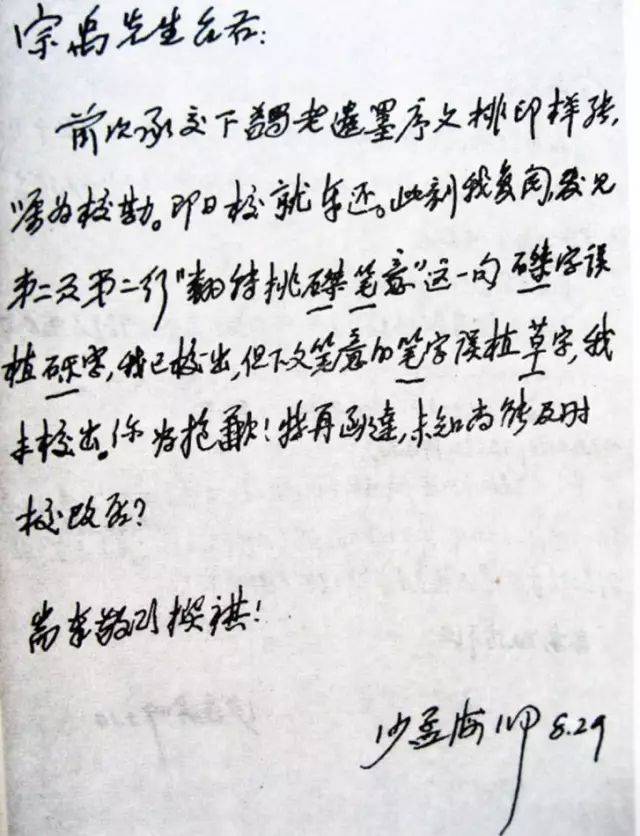 宗禹先生台右:
前次承交下蠲老遗墨序文排印样张,
嘱为校勘。即日校就奉还。此刻我复阅,发见
第二页第二行"挑磔笔意"这一句 磔字误
植砾字,我已校出,但下文笔意的笔字误植草字,我
未校出。深为抱歉!特再函达,未知尚能及时
校改否?
耑奉敬颂撰祺!
沙孟海叩 8.29